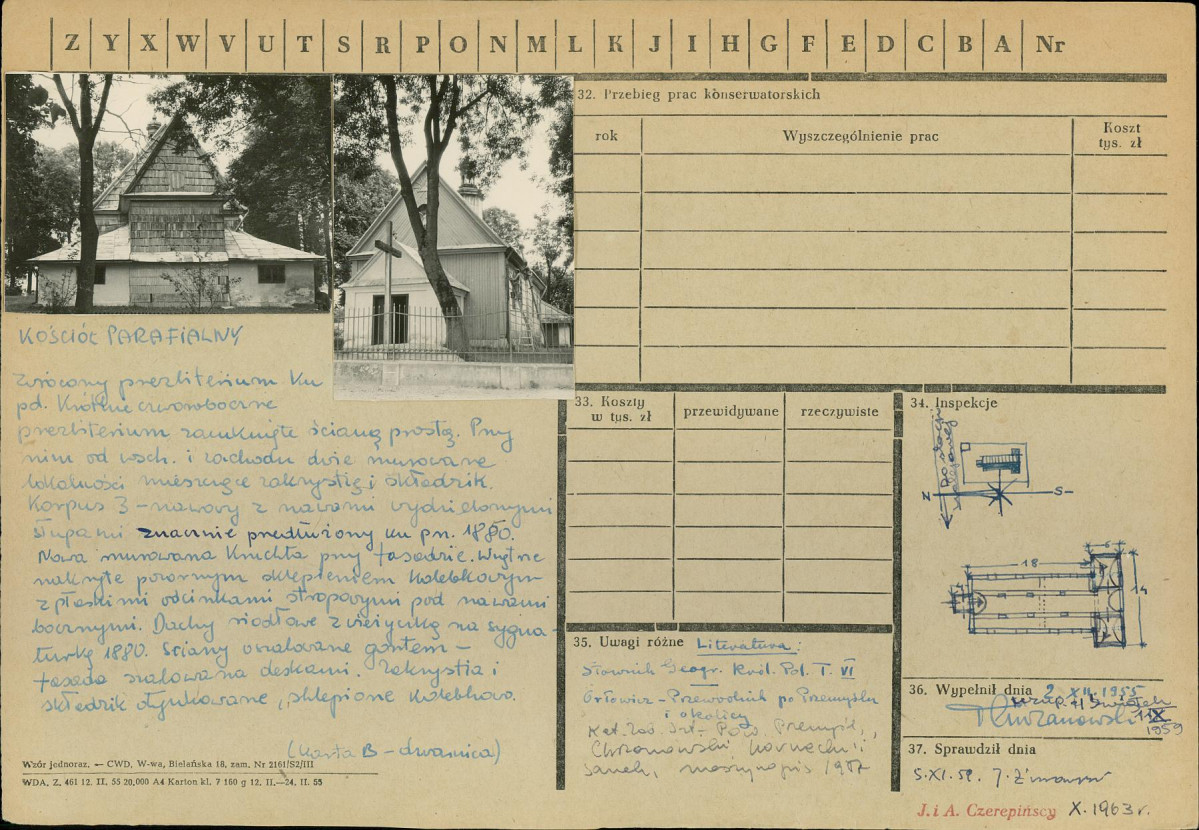 Z Y X W V U T S R P O N M L K J I H G F E D C B A Nr
32. Przebieg prac konserwatorskich
rok
Wyszczególnienie prac
Koszt
tys. zł
KOŚCIÓŁ PARAFIALNY
Zwrócony prezbiterium ku
pd. Krótkie czworoboczne
prezbiterium zamknięte ścianą prostą. Przy
nim od wsch. i zachodu dwie murowane
lokalności mieszczące zakrystię i składzik.
Korpus 3-nawowy z nawami wydzielonymi
słupami znacznie przedłużony ku pn. 1880.
Nowa murowana kruchta przy fasadzie. Wnętrze
nakryte pozornym sklepieniem kolebkowym
z płaskimi odcinkami stropowymi pod nawami
bocznymi. Dachy siodłowe z wieżyczką na sygna-
turkę 1880. Ściany oszalowane gontem -
fasada szalowana deskami. Zakrystia i
składzik otynkowane, sklepione kolebkowo.
(Karta B - dzwonnica)
Wzór jednoraz. — CWD, W-wa, Bielańska 18, zam. Nr 2161/S2/III
WDA. Z. 461 12. II. 55 20,000 A4 Karton kl. 7 160 g 12. II.—24. II. 55
33. Koszty
w tys. zł
przewidywane
rzeczywiste
34. Inspekcje
Do stacji
kolejowej
N
S
18
6
14
35. Uwagi różne Literatura:
Słownik Geogr. Król. Pol. T. VI
Orłowicz - Przewodnik po Przemyślu
i okolicy
Kat. Zab. Szt. Pow. Przemyśl,
Chrzanowski Kornecki i
Samek, maszynopis 19
36. Wypełnił dnia 2 XII 1955
1959
37. Sprawdził dnia
5.XI.59.
J. i A. Czerepińscy X. 1963 r.